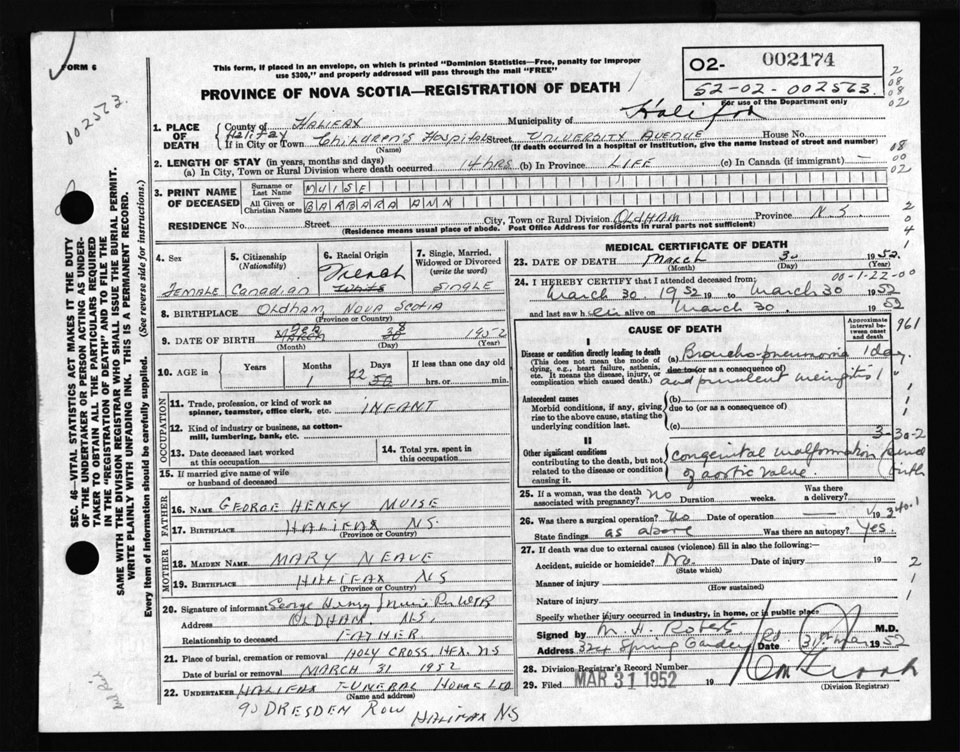 FORM 6
This form, if placed in an envelope, on which is printed "Dominion Statistics—Free, penalty for improper
use $300," and properly addressed will pass through the mail "FREE"
PROVINCE OF NOVA SCOTIA—REGISTRATION OF DEATH
02- 002174
52-02-002563
For use of the Department only
102563
1. PLACE OF DEATH
County of HALIFAX Municipality of Halifax
Halifax
If in City or Town Children's Hospital Street UNIVERSITY AVENUE House No.
(Name) (If death occurred in a hospital or institution, give the name instead of street and number)
2. LENGTH OF STAY (in years, months and days)
(a) In City, Town or Rural Division where death occurred 14 hrs (b) In Province LIFE (c) In Canada (if immigrant) —
3. PRINT NAME OF DECEASED
Surname or Last Name MUISE
All Given or Christian Names BARBARA ANN
RESIDENCE No. Street City, Town or Rural Division OLDHAM Province N.S.
(Residence means usual place of abode. Post Office Address for residents in rural parts not sufficient)
4. Sex FEMALE
5. Citizenship (Nationality) Canadian
6. Racial Origin French White
7. Single, Married, Widowed or Divorced (write the word) SINGLE
8. BIRTHPLACE OLDHAM NOVA SCOTIA
(Province or Country)
9. DATE OF BIRTH FEB MARCH 8 30 1952
(Month) (Day) (Year)
10. AGE in Years Months 1 Days 22 If less than one day old hrs. or min.
OCCUPATION
11. Trade, profession, or kind of work as spinner, teamster, office clerk, etc. INFANT
12. Kind of industry or business, as cotton-mill, lumbering, bank, etc.
13. Date deceased last worked at this occupation
14. Total yrs. spent in this occupation
15. If married give name of wife or husband of deceased
FATHER
16. NAME GEORGE HENRY MUISE
17. BIRTHPLACE HALIFAX NS.
(Province or Country)
MOTHER
18. MAIDEN NAME MARY NEAVE
19. BIRTHPLACE HALIFAX NS
(Province or Country)
20. Signature of informant George Henry Muise
Address OLDHAM, NS,
Relationship to deceased FATHER
21. Place of burial, cremation or removal HOLY CROSS, HFX. NS
Date of burial or removal MARCH 31 1952
22. UNDERTAKER HALIFAX FUNERAL HOME LTD
(Name and address)
90 DRESDEN ROW HALIFAX NS
MEDICAL CERTIFICATE OF DEATH
23. DATE OF DEATH March 30 1952
(Month) (Day) (Year)
00-1-22-00
24. I HEREBY CERTIFY that I attended deceased from:
March 30 1952 19 to March 30 1952
and last saw h alive on March 30 1952
CAUSE OF DEATH
Approximate interval between onset and death
961
I
Disease or condition directly leading to death
(This does not mean the mode of dying, e.g., heart failure, asthenia, etc. It means the disease, injury, or complication which caused death.)
(a) Broncho-pneumonia 1 day
due to (or as a consequence of)
and purulent meningitis 1
Antecedent causes
Morbid conditions, if any, giving rise to the above cause, stating the underlying condition last.
(b)
due to (or as a consequence of)
(c)
3-30-2
II
Other significant conditions
contributing to the death, but not related to the disease or condition causing it.
congenital malformation since
of aortic valve. birth
25. If a woman, was the death associated with pregnancy? no Duration weeks. Was there a delivery?
26. Was there surgical operation? no Date of operation
State findings as above Was there an autopsy? Yes.
27. If death was due to external causes (violence) fill in also the following:—
Accident, suicide or homicide? No. Date of injury 19
(State which)
Manner of injury
(How sustained)
Nature of injury
Specify whether injury occurred in industry, in home, or in public place
Signed by M. H. Robert M.D.
Address 324 Spring Garden Rd. Date 31st Mar 1952
28. Division Registrar's Record Number
29. Filed MAR 31 1952 19
(Division Registrar)
SEC. 46—VITAL STATISTICS ACT MAKES IT THE DUTY
OF THE UNDERTAKER OR PERSON ACTING AS UNDER-
TAKER TO OBTAIN ALL THE PARTICULARS REQUIRED
IN THE "REGISTRATION OF DEATH" AND TO FILE THE
SAME WITH THE DIVISION REGISTRAR WHO SHALL ISSUE THE BURIAL PERMIT.
WRITE PLAINLY WITH UNFADING INK. THIS IS A PERMANENT RECORD.
Every item of information should be carefully supplied. (See reverse side for instructions.)